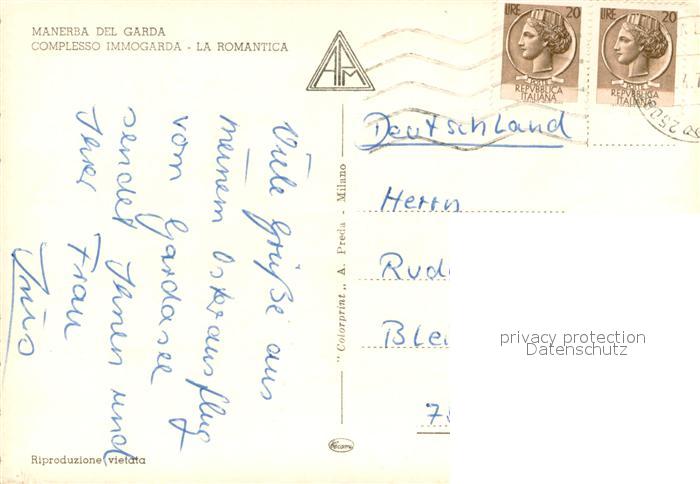 MANERBA DEL GARDA
COMPLESSO IMMOGARDA - LA ROMANTICA
AFM
LIRE 20
POSTE
REPVBBLICA
ITALIANA
LIRE 20
POSTE
REPVBBLICA
ITALIANA
Viele Grüße aus
meinem Osterausflug
vom Gardasee
sendet Ihnen und
Ihrer Frau
"Colorprint" A. Preda - Milano
Deutschland
Herrn
Rud
Ble
7
privacy protection
Datenschutz
Riproduzione vietata